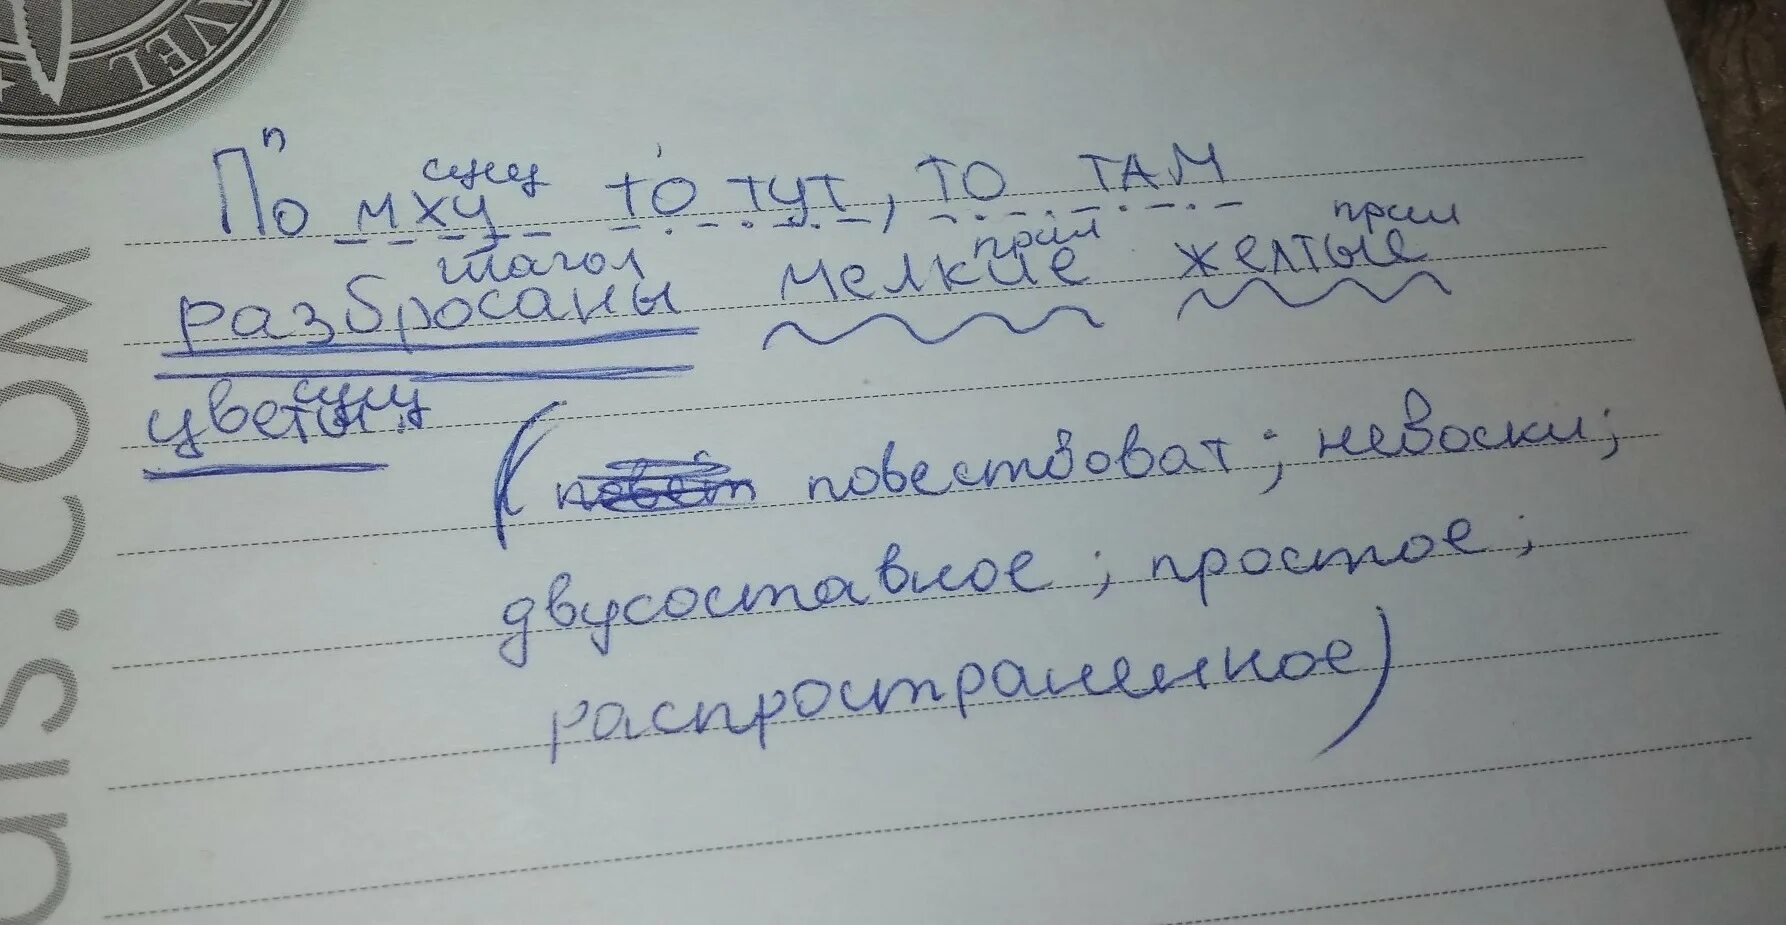 AVEL
п
сущ
По мху то тут, то там
глагол прил прил
разбросаны мелкие желтые
сущ
цветы. (повест повествоват; невоскл;
двусоставное; простое;
распространенное)
als.com